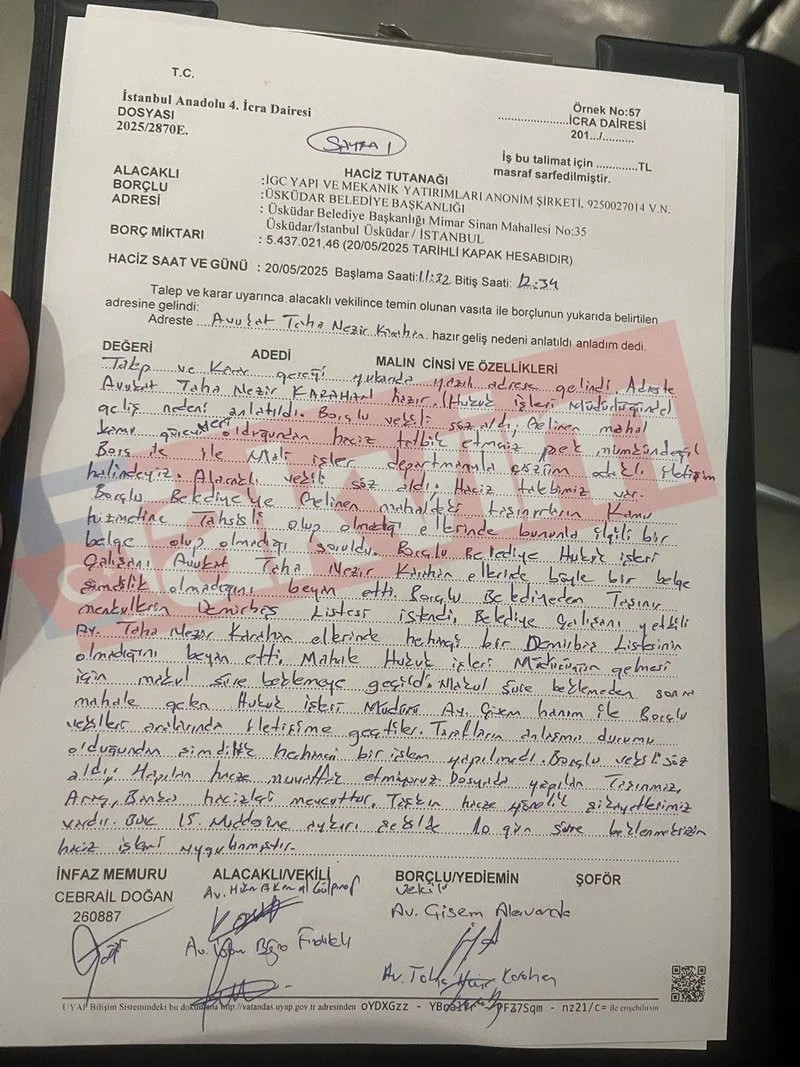 T.C.
İstanbul Anadolu 4. İcra Dairesi
DOSYASI
2025/2870E.
Örnek No:57
....................İCRA DAİRESİ
201.../..........
SAYFA 1
İş bu talimat için ............TL
masraf sarfedilmiştir.
HACİZ TUTANAĞI
ALACAKLI :İGC YAPI VE MEKANİK YATIRIMLARI ANONİM ŞİRKETİ, 9250027014 V.N.
BORÇLU :ÜSKÜDAR BELEDİYE BAŞKANLIĞI
ADRESİ : Üsküdar Belediye Başkanlığı Mimar Sinan Mahallesi No:35
Üsküdar/İstanbul Üsküdar / İSTANBUL
BORÇ MİKTARI : 5.437.021,46 (20/05/2025 TARİHLİ KAPAK HESABIDIR)
HACİZ SAAT VE GÜNÜ : 20/05/2025 Başlama Saati:11:32 Bitiş Saati: 12:34
Talep ve karar uyarınca alacaklı vekilince temin olunan vasıta ile borçlunun yukarıda belirtilen
adresine gelindi:
Adreste Avukat Taha Nezir Karahan hazır geliş nedeni anlatıldı anladım dedi.
DEĞERİ ADEDİ MALIN CİNSİ VE ÖZELLİKLERİ
Talep ve Karar gereği yukarıda yazılı adrese gelindi, Adreste
Avukat Taha Nezir KARAHAN hazır. (Hukuk işleri Müdürlüğünde)
geliş nedeni anlatıldı. Borçlu vekili söz aldı; Gelinen mahal
kamu olduğundan haciz tatbik etmeniz pek mümkün değil
Borç ile Mali işler departmanıyla çözüm odaklı iletişim
halindeyiz. Alacaklı vekili söz aldı; Haciz talebimiz var.
Borçlu Belediyeye Gelinen mahaldeki taşınırların Kamu
hizmetine Tahsisli olup olmadığı ellerinde bununla ilgili bir
belge olup olmadığı soruldu. Borçlu Belediye Hukuk işleri
Çalışanı Avukat Taha Nezir Karahan ellerinde böyle bir belge
şimdilik olmadığını beyan etti. Borçlu Belediyeden Taşınır
menkullerin Demirbaş Listesi istendi, Belediye Çalışanı yetkili
Av. Taha Nezir Karahan ellerinde herhangi bir Demirbaş Listesinin
olmadığını beyan etti. Hukuk işleri Müdürünün gelmesi
için makul süre beklemeye geçildi. Makul süre beklemeden sonra
mahale gelen Hukuk işleri Müdürü Av. Gizem hanım ile Borçlu
vekilleri aralarında iletişime geçtiler. Tarafların anlaşma durumu
olduğundan şimdilik herhangi bir işlem yapılmadı. Borçlu vekili söz
aldı; Yapılan hacze muvafakat etmiyoruz Dosyada yapılan Taşınmaz,
Araç, Banka hacizleri mevcuttur, Taşkın hacze yönelik şikayetlerimiz
vardır. 15. Maddesine aykırı şekilde 10 gün süre beklenmeksizin
haciz işlemi uygulanmıştır.
İNFAZ MEMURU ALACAKLI/VEKİLİ BORÇLU/YEDİEMİN ŞOFÖR
CEBRAİL DOĞAN
260887
Vekili
Av. Gizem
Av. Taha Nezir Karahan
UYAP Bilişim Sistemindeki bu dokümana http://vatandas.uyap.gov.tr adresinden oYDXGzz - - nz21/c= ile erişebilirsin
takvim